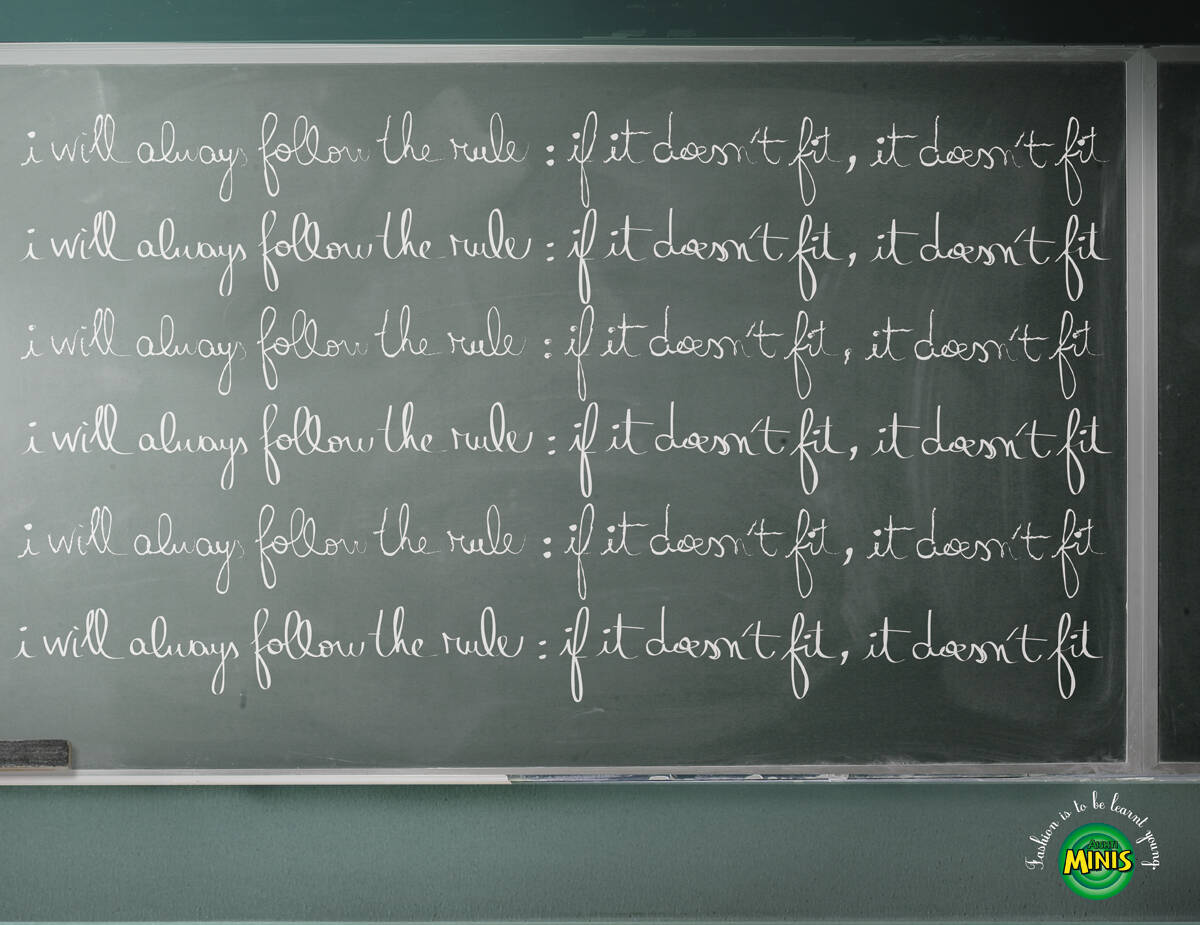 i will always follow the rule : if it doesn't fit, it doesn't fit
i will always follow the rule : if it doesn't fit, it doesn't fit
i will always follow the rule : if it doesn't fit, it doesn't fit
i will always follow the rule : if it doesn't fit, it doesn't fit
i will always follow the rule : if it doesn't fit, it doesn't fit
i will always follow the rule : if it doesn't fit, it doesn't fit
Fashion is to be learnt young.
AÏSHTI
MINIS